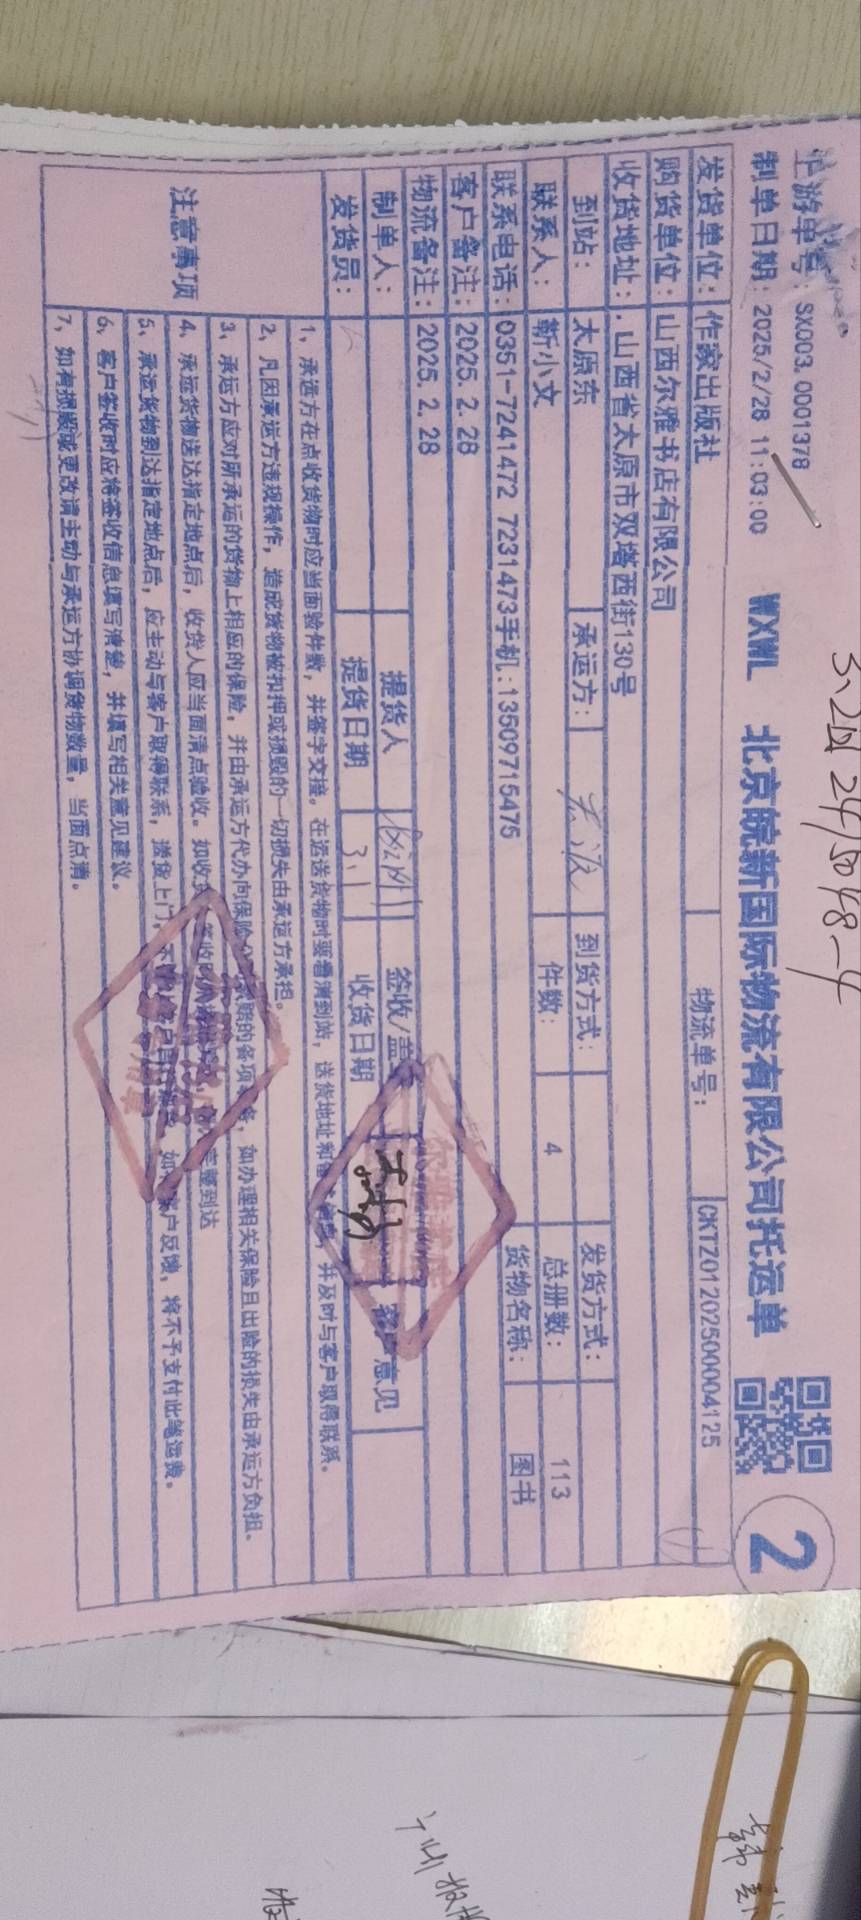 3、2返 24/5048-4
上游单号：SX003.0001378
WXWL 北京皖新国际物流有限公司托运单
2
制单日期：2025/2/28 11:03:00
物流单号： CKTZ01202500004125
发货单位： 作家出版社
购货单位： 山西尔雅书店有限公司
收货地址： .山西省太原市双塔西街130号
到站： 太原东 承运方： 到货方式： 发货方式：
联系人： 靳小文 件数： 4 总册数： 113
联系电话： 0351-7241472 7231473手机:13509715475 货物名称： 图书
客户备注： 2025.2.28
物流备注： 2025.2.28
制单人： 提货人 签收/盖 意见
发货员： 提货日期 3.1 收货日期
注意事项
1、承运方在点收货物时应当面验件数，并签字交接。在运送货物时要看清到站，送货地址和 并及时与客户取得联系。
2、凡因承运方违规操作，造成货物被扣押或损毁的一切损失由承运方承担。
3、承运方应对所承运的货物上相应的保险，并由承运方代办向保险 的各项 如办理相关保险且出险的损失由承运方负担。
4、承运货物送达指定地点后，收货人应当面清点验收。如收货 到达
5、承运货物到达指定地点后，应主动与客户取得联系，送货上门， 如 客户反馈，将不予支付此笔运费。
6、客户签收时应将签收信息填写清楚，并填写相关意见建议。
7、如有损毁或更改请主动与承运方协调货物数量，当面点清。